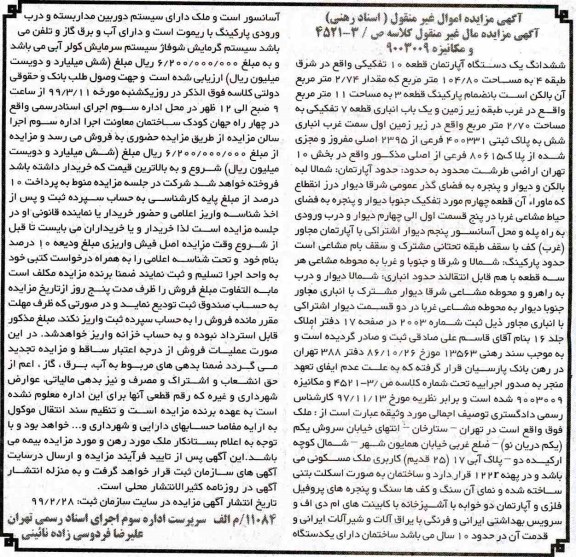 آگهی مزایده اموال غیر منقول ( اسناد رهنی)
آگهی مزایده مال غیر منقول کلاسه ص / ۳-۴۵۲۱
و مکانیزه ۹۰۰۳۰۰۹
ششدانگ یک دستگاه آپارتمان قطعه ۱۰ تفکیکی واقع در شرق
طبقه ۴ به مساحت ۱۰۴/۸۰ متر مربع که مقدار ۲/۷۴ متر مربع
آن بالکن است بانضمام پارکینگ قطعه ۳ به مساحت ۱۱ متر مربع
واقع در غرب طبقه زیر زمین و یک باب انباری قطعه ۷ تفکیکی به
مساحت ۲/۷۰ متر مربع واقع در زیر زمین اول سمت غرب انباری
شش به پلاک ثبتی ۴۰۰۳۳۱ فرعی از ۲۳۹۵ اصلی مفروز و مجزی
شده از پلاک ۸۰۶۱۵ فرعی از اصلی مذکور واقع در بخش ۱۰
تهران اراضی طرشت محدود به حدود: حدود آپارتمان: شمالا لبه
بالکن و دیوار و پنجره به فضای گذر عمومی شرقا دیوار درز انقطاع
که ماوراء آن قطعه چهارم مورد تفکیک جنوبا دیوار و پنجره به فضای
حیاط مشاعی غربا در پنج قسمت اول الی چهارم دیوار و درب ورودی
به راه پله و محل آسانسور پنجم دیوار اشتراکی با آپارتمان مجاور
(غرب) کف با سقف طبقه تحتانی مشترک و سقف بام مشاعی است
حدود پارکینگ: شمالا و شرقا و جنوبا و غربا به محوطه مشاعی هر
سه قطعه با هم قابل انتقالند حدود انباری: شمالا دیوار و درب
به راهرو و محوطه مشاعی شرقا دیوار مشترک با انباری مجاور
جنوبا دیوار به محوطه مشاعی غربا در دو قسمت دیوار اشتراکی
با انباری مجاور ذیل ثبت شماره ۲۰۰۳ در صفحه ۱۷ دفتر املاک
جلد ۱۶ بنام آقای قاسم علی صادقی ثبت و صادر گردیده است و
به موجب سند رهنی ۱۳۵۶۳ مورخ ۸۶/۱۰/۲۶ دفتر ۳۸۸ تهران
در رهن بانک پارسیان قرار گرفته که به علت عدم ایفای تعهد
منجر به صدور اجراییه تحت شماره کلاسه ص /۳-۴۵۲۱ و مکانیزه
۹۰۰۳۰۰۹ شده است و برابر نظریه مورخ ۹۷/۱۱/۱۳ کارشناس
رسمی دادگستری توصیف اجمالی مورد وثیقه عبارت است از : ملک
فوق واقع است در تهران - ستارخان - انتهای خیابان سروش یکم
(یکم دریان نو) - ضلع غربی خیابان همایون شهر - شمال کوچه
ارکیده دو - پلاک آبی ۱۷ (۲۵ قدیم) کاربری ملک مسکونی می
باشد و در پهنه R۱۲۲ قرار دارد و ساختمان به صورت اسکلت بتنی
ساخته شده و نمای آن سنگ و کف ها سنگ و پنجره های پروفیل
فلزی و آپارتمان دو خوابه با آشپزخانه با کابینت های ام دی اف و
سرویس بهداشتی ایرانی و فرنگی با یراق آلات و شیرآلات ایرانی و
قدمت آن در حدود ۱۰ سال می باشد ساختمان دارای یکدستگاه
آسانسور است و ملک دارای سیستم دوربین مداربسته و درب
ورودی پارکینگ با ریموت است و دارای آب و برق گاز و تلفن می
باشد سیستم گرمایش شوفاژ سیستم سرمایش کولر آبی می باشد
و به مبلغ ۶/۲۰۰/۰۰۰/۰۰۰ ریال مبلغ (شش میلیارد و دویست
میلیون ریال) ارزیابی شده است و جهت وصول طلب بانک و حقوقی
دولتی کلاسه فوق الذکر در روزیکشنبه مورخه ۹۹/۳/۱۱ از ساعت
۹ صبح الی ۱۲ ظهر در محل اداره سوم اجرای اسنادرسمی واقع
در چهار راه جهان کودک ساختمان معاونت اجرا اداره سوم اجرا
سالن مزایده از طریق مزایده حضوری به فروش می رسد و مزایده
از مبلغ ۶/۲۰۰/۰۰۰/۰۰۰ ریال مبلغ (شش میلیارد و دویست
میلیون ریال) شروع و به بالاترین قیمت که خریدار داشته باشد
فروخته خواهد شد شرکت در جلسه مزایده منوط به پرداخت ۱۰
درصد از مبلغ پایه کارشناسی به حساب سپرده ثبت و پس از
اخذ شناسه واریز اعلامی و حضور خریدار یا نماینده قانونی او در
جلسه مزایده است لذا خریدار و یا خریداران می بایست تا قبل
از شروع وقت مزایده اصل فیش واریزی مبلغ ودیعه ۱۰ درصد
بنام خود و تحت شناسه اعلامی را به همراه درخواست کتبی خود
به واحد اجرا تسلیم و ثبت نمایند ضمنا برنده مزایده مکلف است
مابه التفاوت مبلغ فروش را ظرف مدت پنج روز ازتاریخ مزایده
به حساب صندوق ثبت تودیع نماید و در صورتی که ظرف مهلت
مقرر مانده فروش را به حساب سپرده ثبت واریز نکند. مبلغ مذکور
قابل استرداد نبوده و به حساب خزانه واریز خواهدشد. در این
صورت عملیات فروش از درجه اعتبار ساقط و مزایده تجدید
می گردد ضمنا بدهی های مربوط به آب، برق، گاز، اعم از
حق انشعاب و اشتراک و مصرف و نیز بدهی مالیاتی، عوارض
شهرداری و غیره که رقم قطعی آنها برای این اداره معلوم نشده
است به عهده برنده مزایده است و تنظیم سند انتقال موکول
به ارایه مفاصا حسابهای دارایی و شهرداری و... خواهد بود و با
توجه به اعلام بستانکار ملک مورد رهن و مورد مزایده بیمه می
باشد.این آگهی پس از تایید فرآیند مزایده و ارسال درسایت
آگهی های سازمان ثبت قرار خواهد گرفت و به منزله انتشار
آگهی در روزنامه کثیرالانتشار محلی است.
تاریخ انتشار آگهی مزایده در سایت سازمان ثبت: ۹۹/۲/۲۸
۱۱۰۸۴/م الف سرپرست اداره سوم اجرای اسناد رسمی تهران
علیرضا فردوسی زاده نائینی